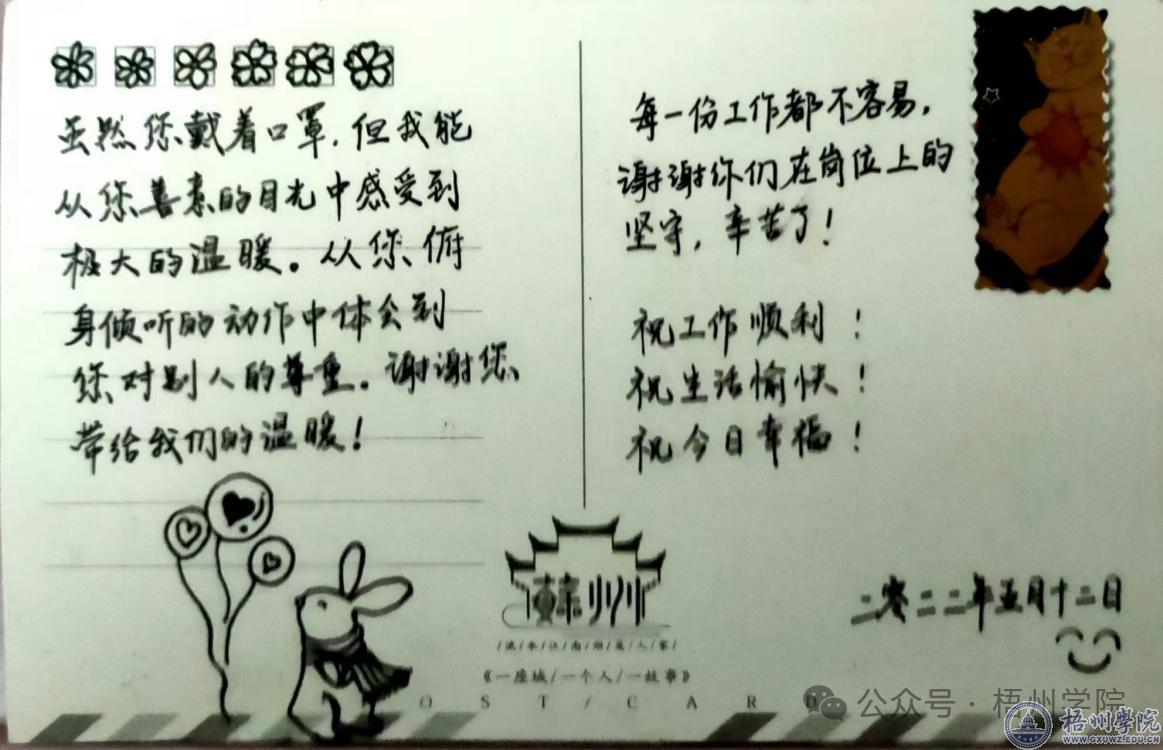 虽然您戴着口罩,但我能
从您善意的目光中感受到
极大的温暖。从您俯
身倾听的动作中体会到
您对别人的尊重。谢谢您
带给我们的温暖!
每一份工作都不容易,
谢谢你们在岗位上的
坚守,辛苦了!
祝工作顺利!
祝生活愉快!
祝今日幸福!
二零二二年五月十二日
蘇州
《一座城/一个人/一故事》
POST/CARD
公众号·梧州学院
梧州学院
WWW.GXUWZ.EDU.CN